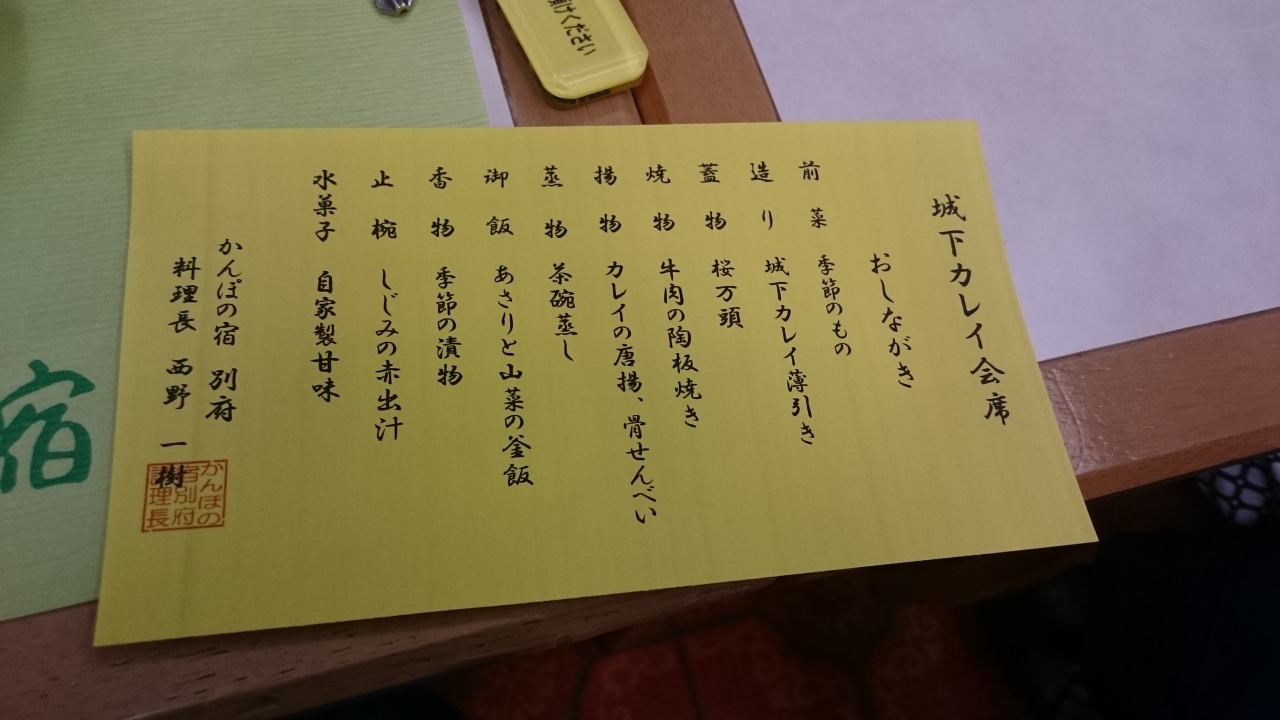 城下カレイ会席
おしながき
前菜 季節のもの
造り 城下カレイ薄引き
蓋物 桜万頭
焼物 牛肉の陶板焼き
揚物 カレイの唐揚、骨せんべい
蒸物 茶碗蒸し
御飯 あさりと山菜の釜飯
香物 季節の漬物
止椀 しじみの赤出汁
水菓子 自家製甘味
かんぽの宿 別府
料理長 西野 一樹
かんぽの
宿別府
調理長
けください
宿